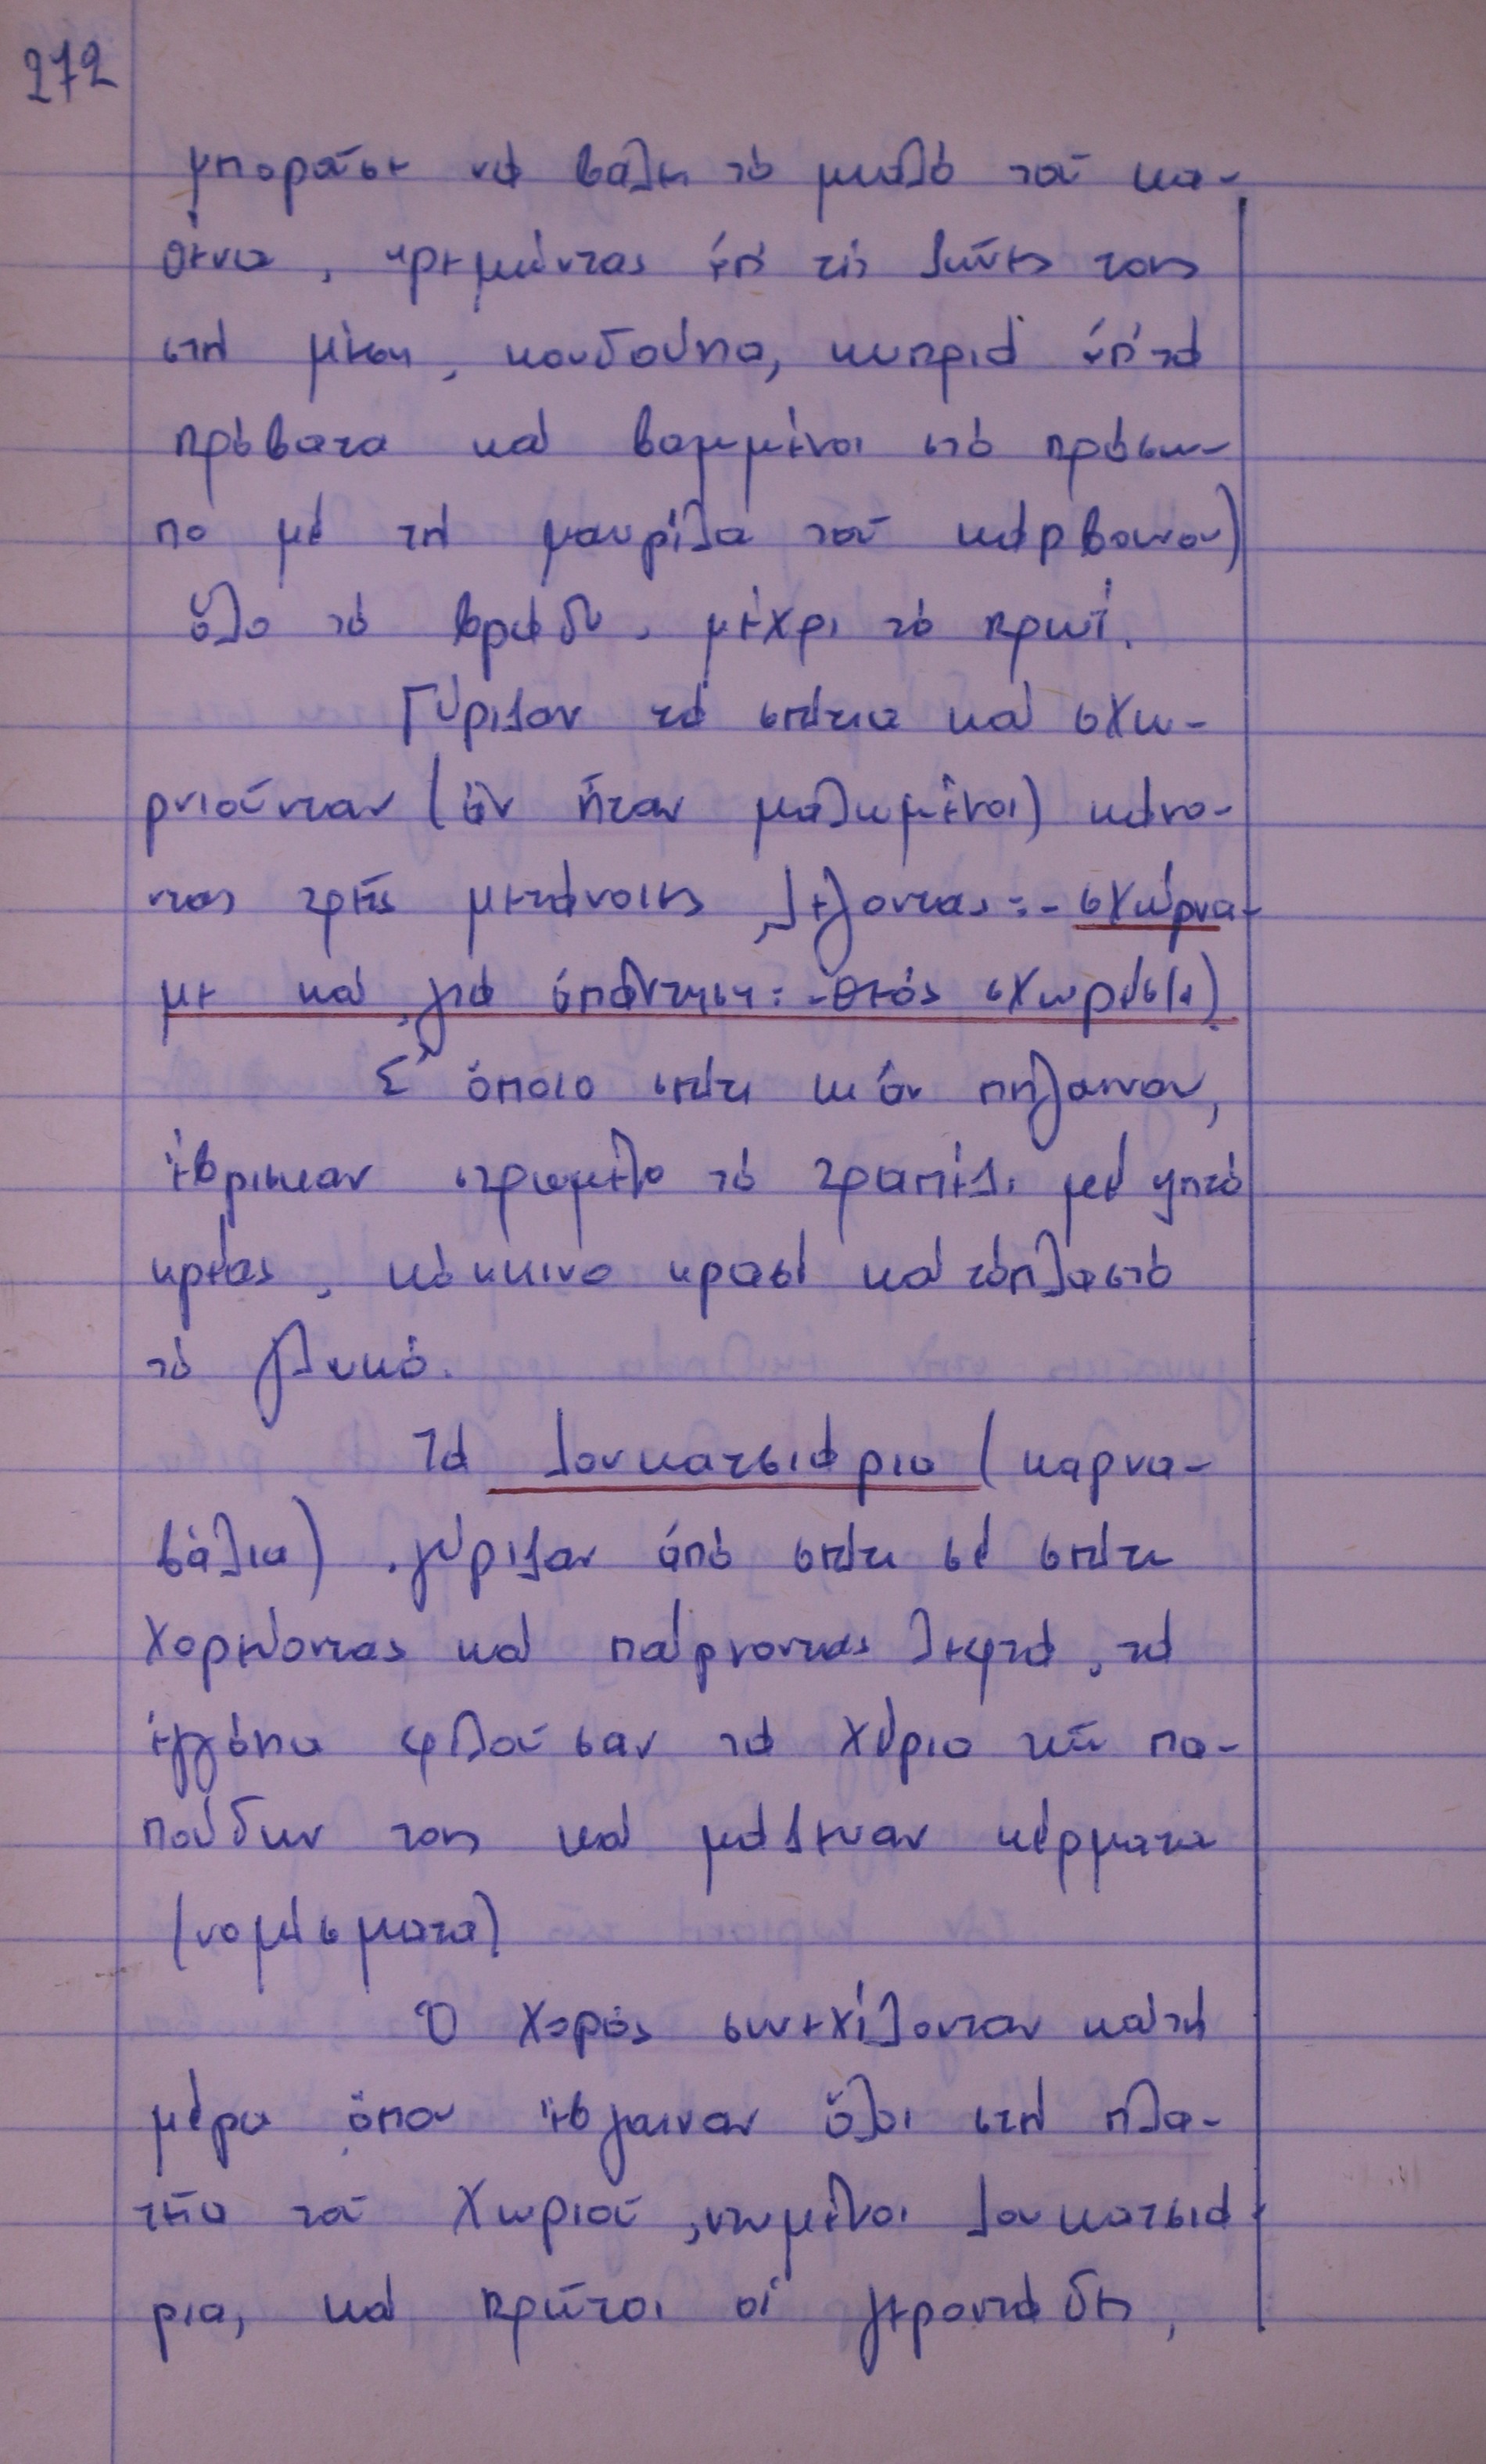 272
μποροῦσε νά βάλη τό μυαλό τοῦ κα-
θένα, κρεμώντας ἀπό τίς ζῶνες τους
στή μέση, κουδούνια, κυπριά ἀπ' τά
πρόβατα καί βαμμένοι στό πρόσω-
πο μέ τή μαυρίλα τοῦ κάρβουνου)
ὅλο τό βράδυ, μέχρι τό πρωί.
Γύριζαν τά σπίτια καί σχω-
ρνιοῦνταν (ἄν ἦταν μαλωμένοι) κάνο-
ντας τρεῖς μετάνοιες λέγοντας:- σχώρνα-
με καί γιά ἀπάντηση: -Θεός σχωρέσ(ι)
Σ' ὅποιο σπίτι κι ἄν πήγαιναν,
ἔβρισκαν στρωμένο τό τραπέζι μέ ψητό
κρέας, κόκκινο κρασί καί τόπλαστό
τό γλυκό.
Τά ζουκατσιάρια (καρνα-
βάλια) γύριζαν ἀπό σπίτι σέ σπίτι
χορεύοντας καί παίρνοντας λεφτά, τά
ἐγγόνια φιλοῦσαν τά χέρια τῶν πα-
πούδων τους καί μάζευαν κέρματα
(νομίσματα)
Ὁ χορός συνεχίζονταν καί τή
μέρα ὅπου ἔβγαιναν ὅλοι στή πλα-
τεῖα τοῦ χωριοῦ, ντυμένοι ζουκατσιά-
ρια, καί πρῶτοι οἱ γεροντάδες,